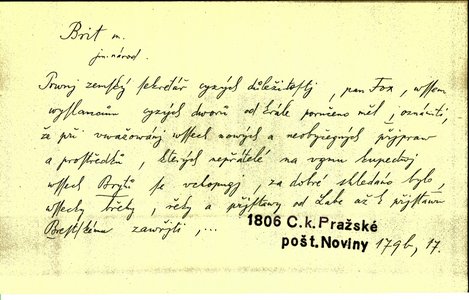 Brit m.
jm. národ.
Prwnj zemský sekretář cyzých důležitostj, pan Fox, wssem
wyslancům cyzých dworů od krále poručeno měl, oznámiti,
že při uwažowánj wssech nowých a neobyčegných přjpraw
a prostředků, kterých nepřátelé na zkupectwj
wssech Brytů se , za dobré shledáno bylo,
wssecky břehy, řeky a přjstawy od Labe až k přjstawu
Brestskému zawřjti, ...
1806 C.k. Pražské
pošt. Noviny 179b, 17.